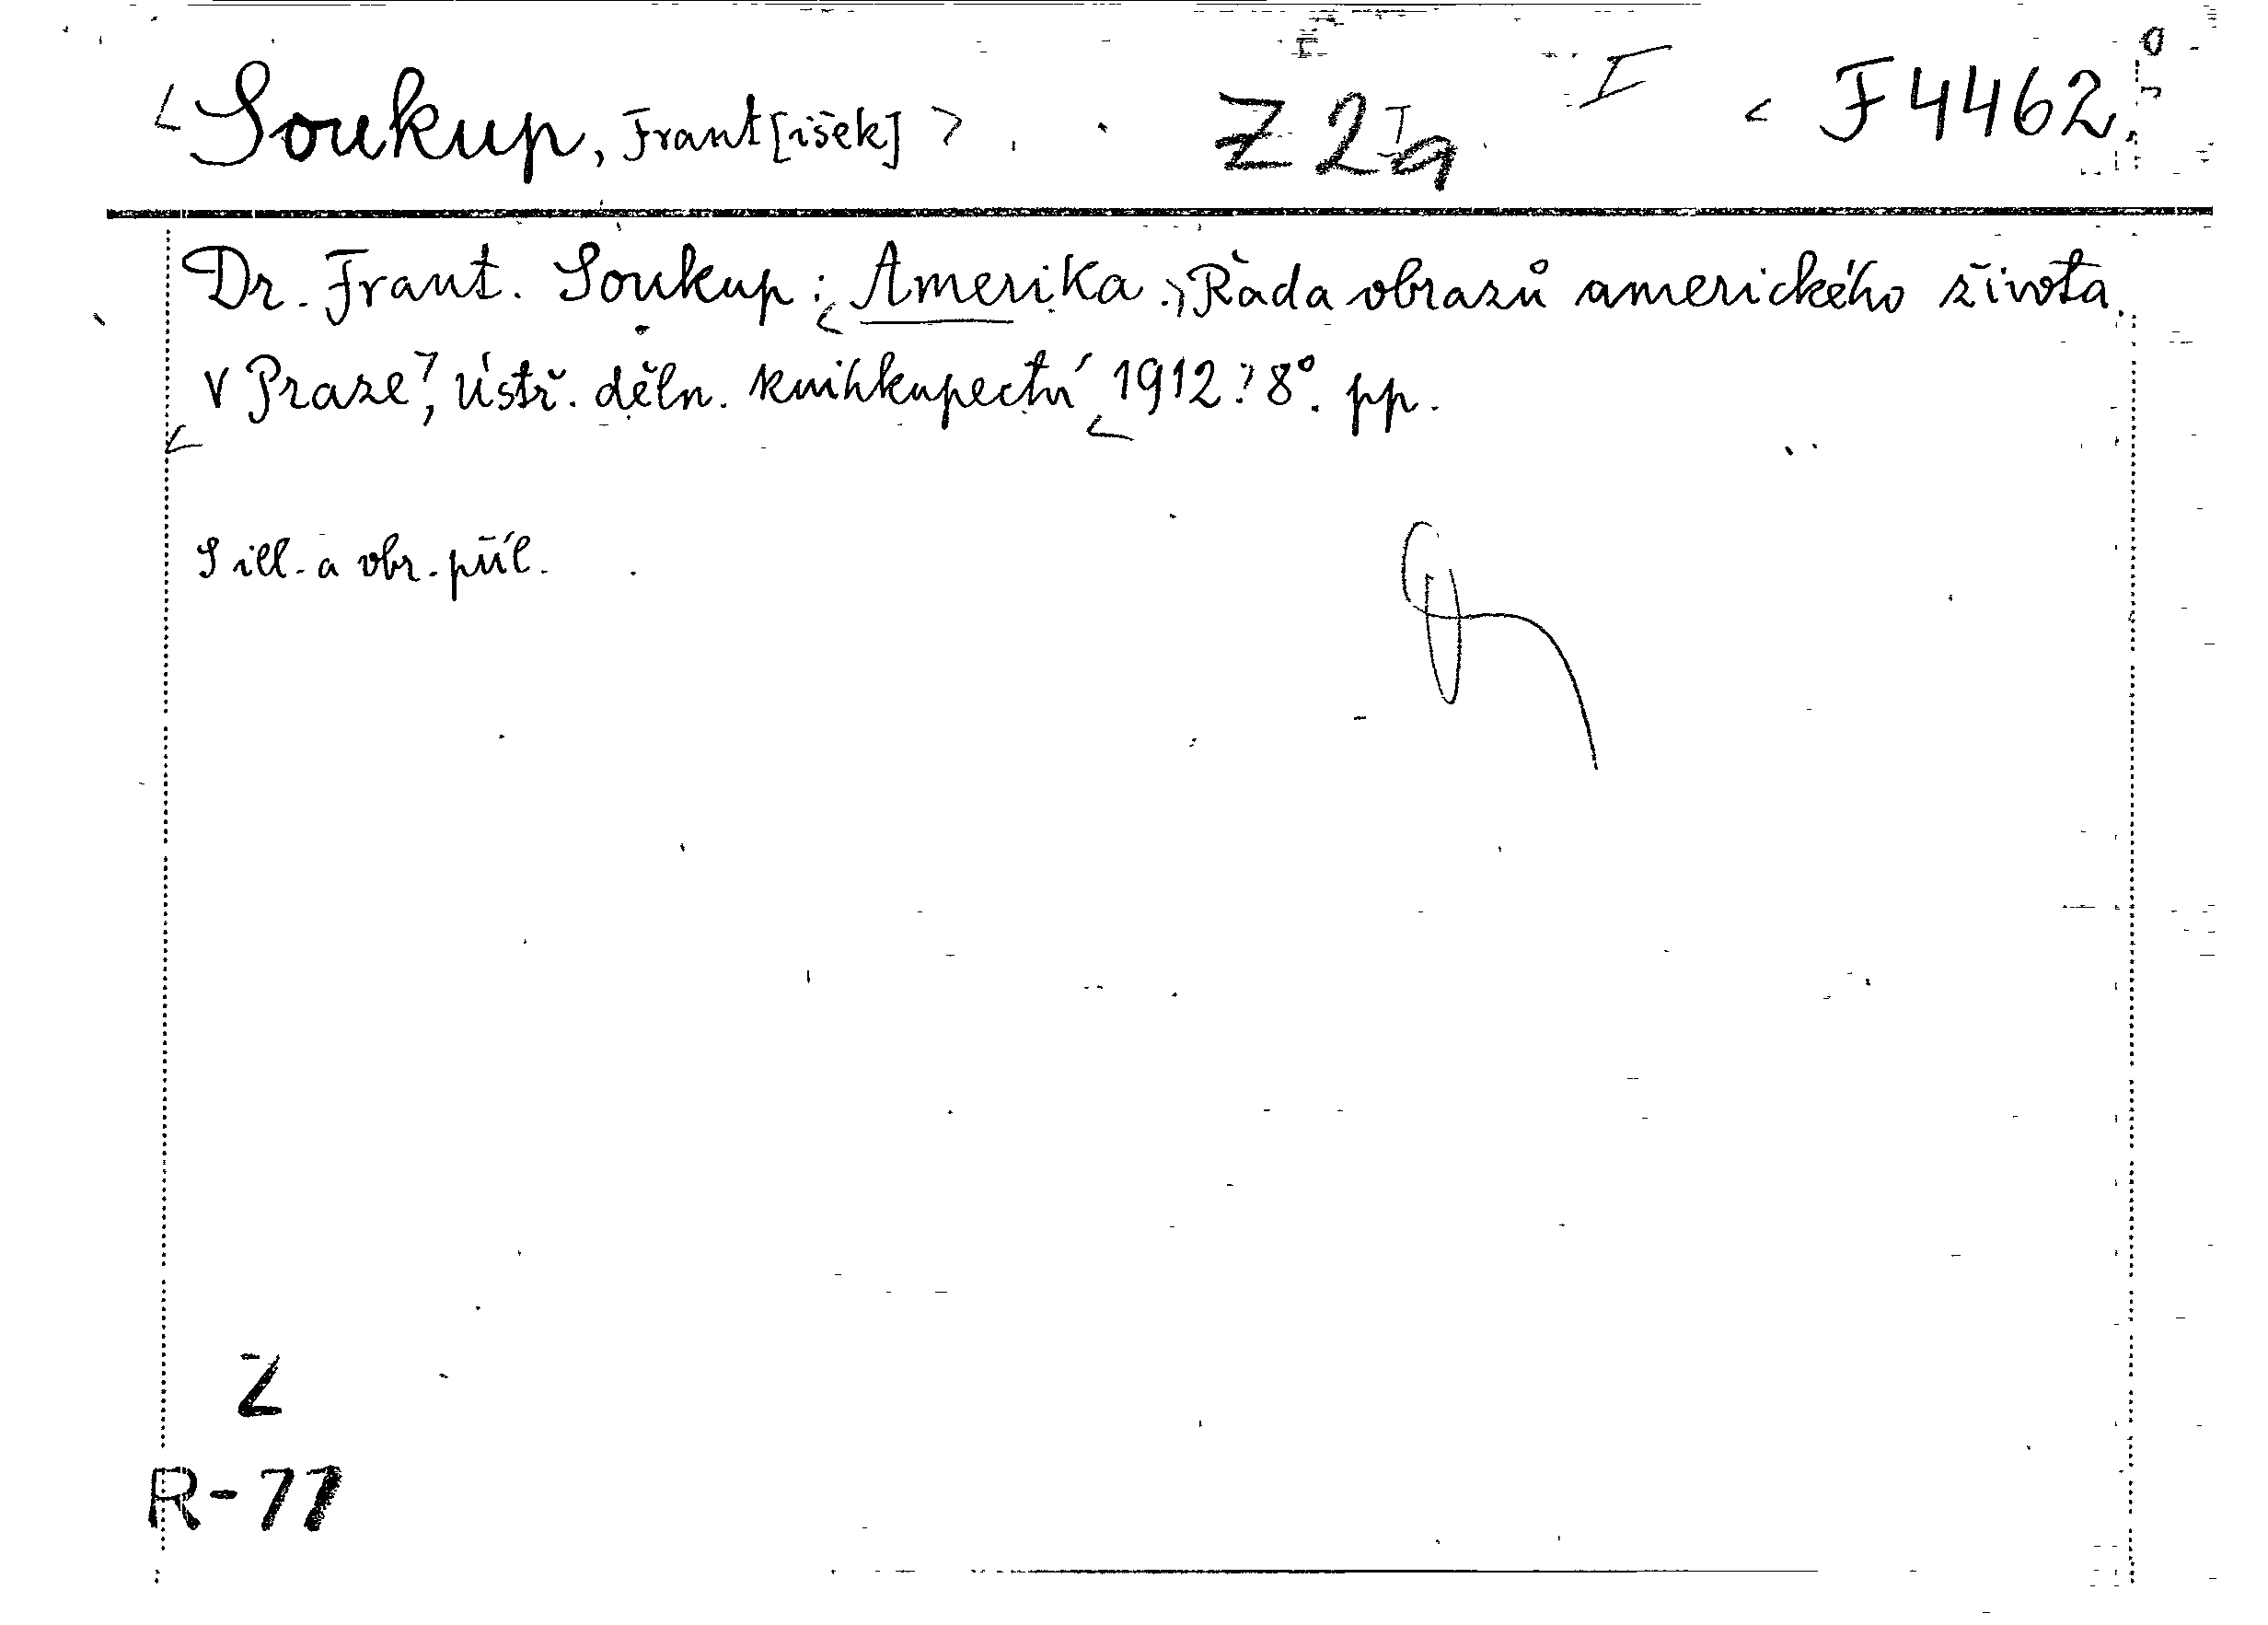 <Soukup, Frant[išek]>. Z 2 I < F 4462.
Dr. Frant. Soukup: <Amerika.> Řada obrazů amerického života.
V Praze>, Ústř. děln. knihkupectví <1912> 8°. pp.
S ill. a obr. příl.
Z
R-77